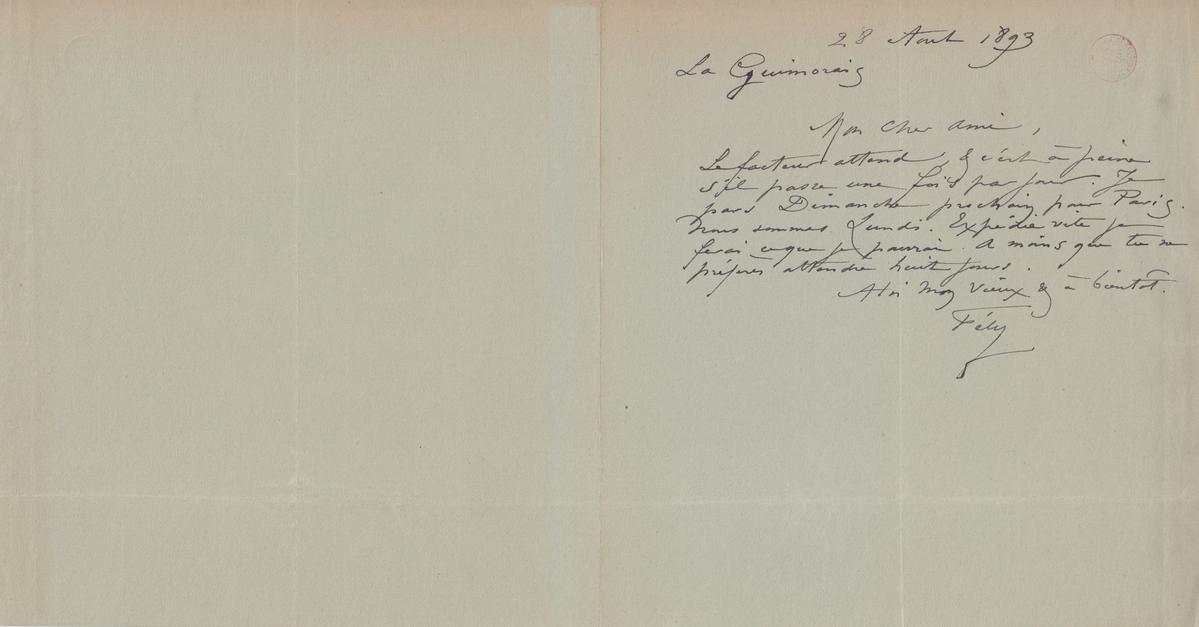 28 Aout 1893
La Guimorais
Mon cher ami,
Le facteur attend, & c'est à peine
s'il passe une fois par jour. Je
pars Dimanche prochain pour Paris.
Nous sommes Lundi. Expédie vite je
ferai ce que je pourrai. A moins que tu ne
préfères attendre huit jours.
A toi mon vieux & à bientôt.
Fély